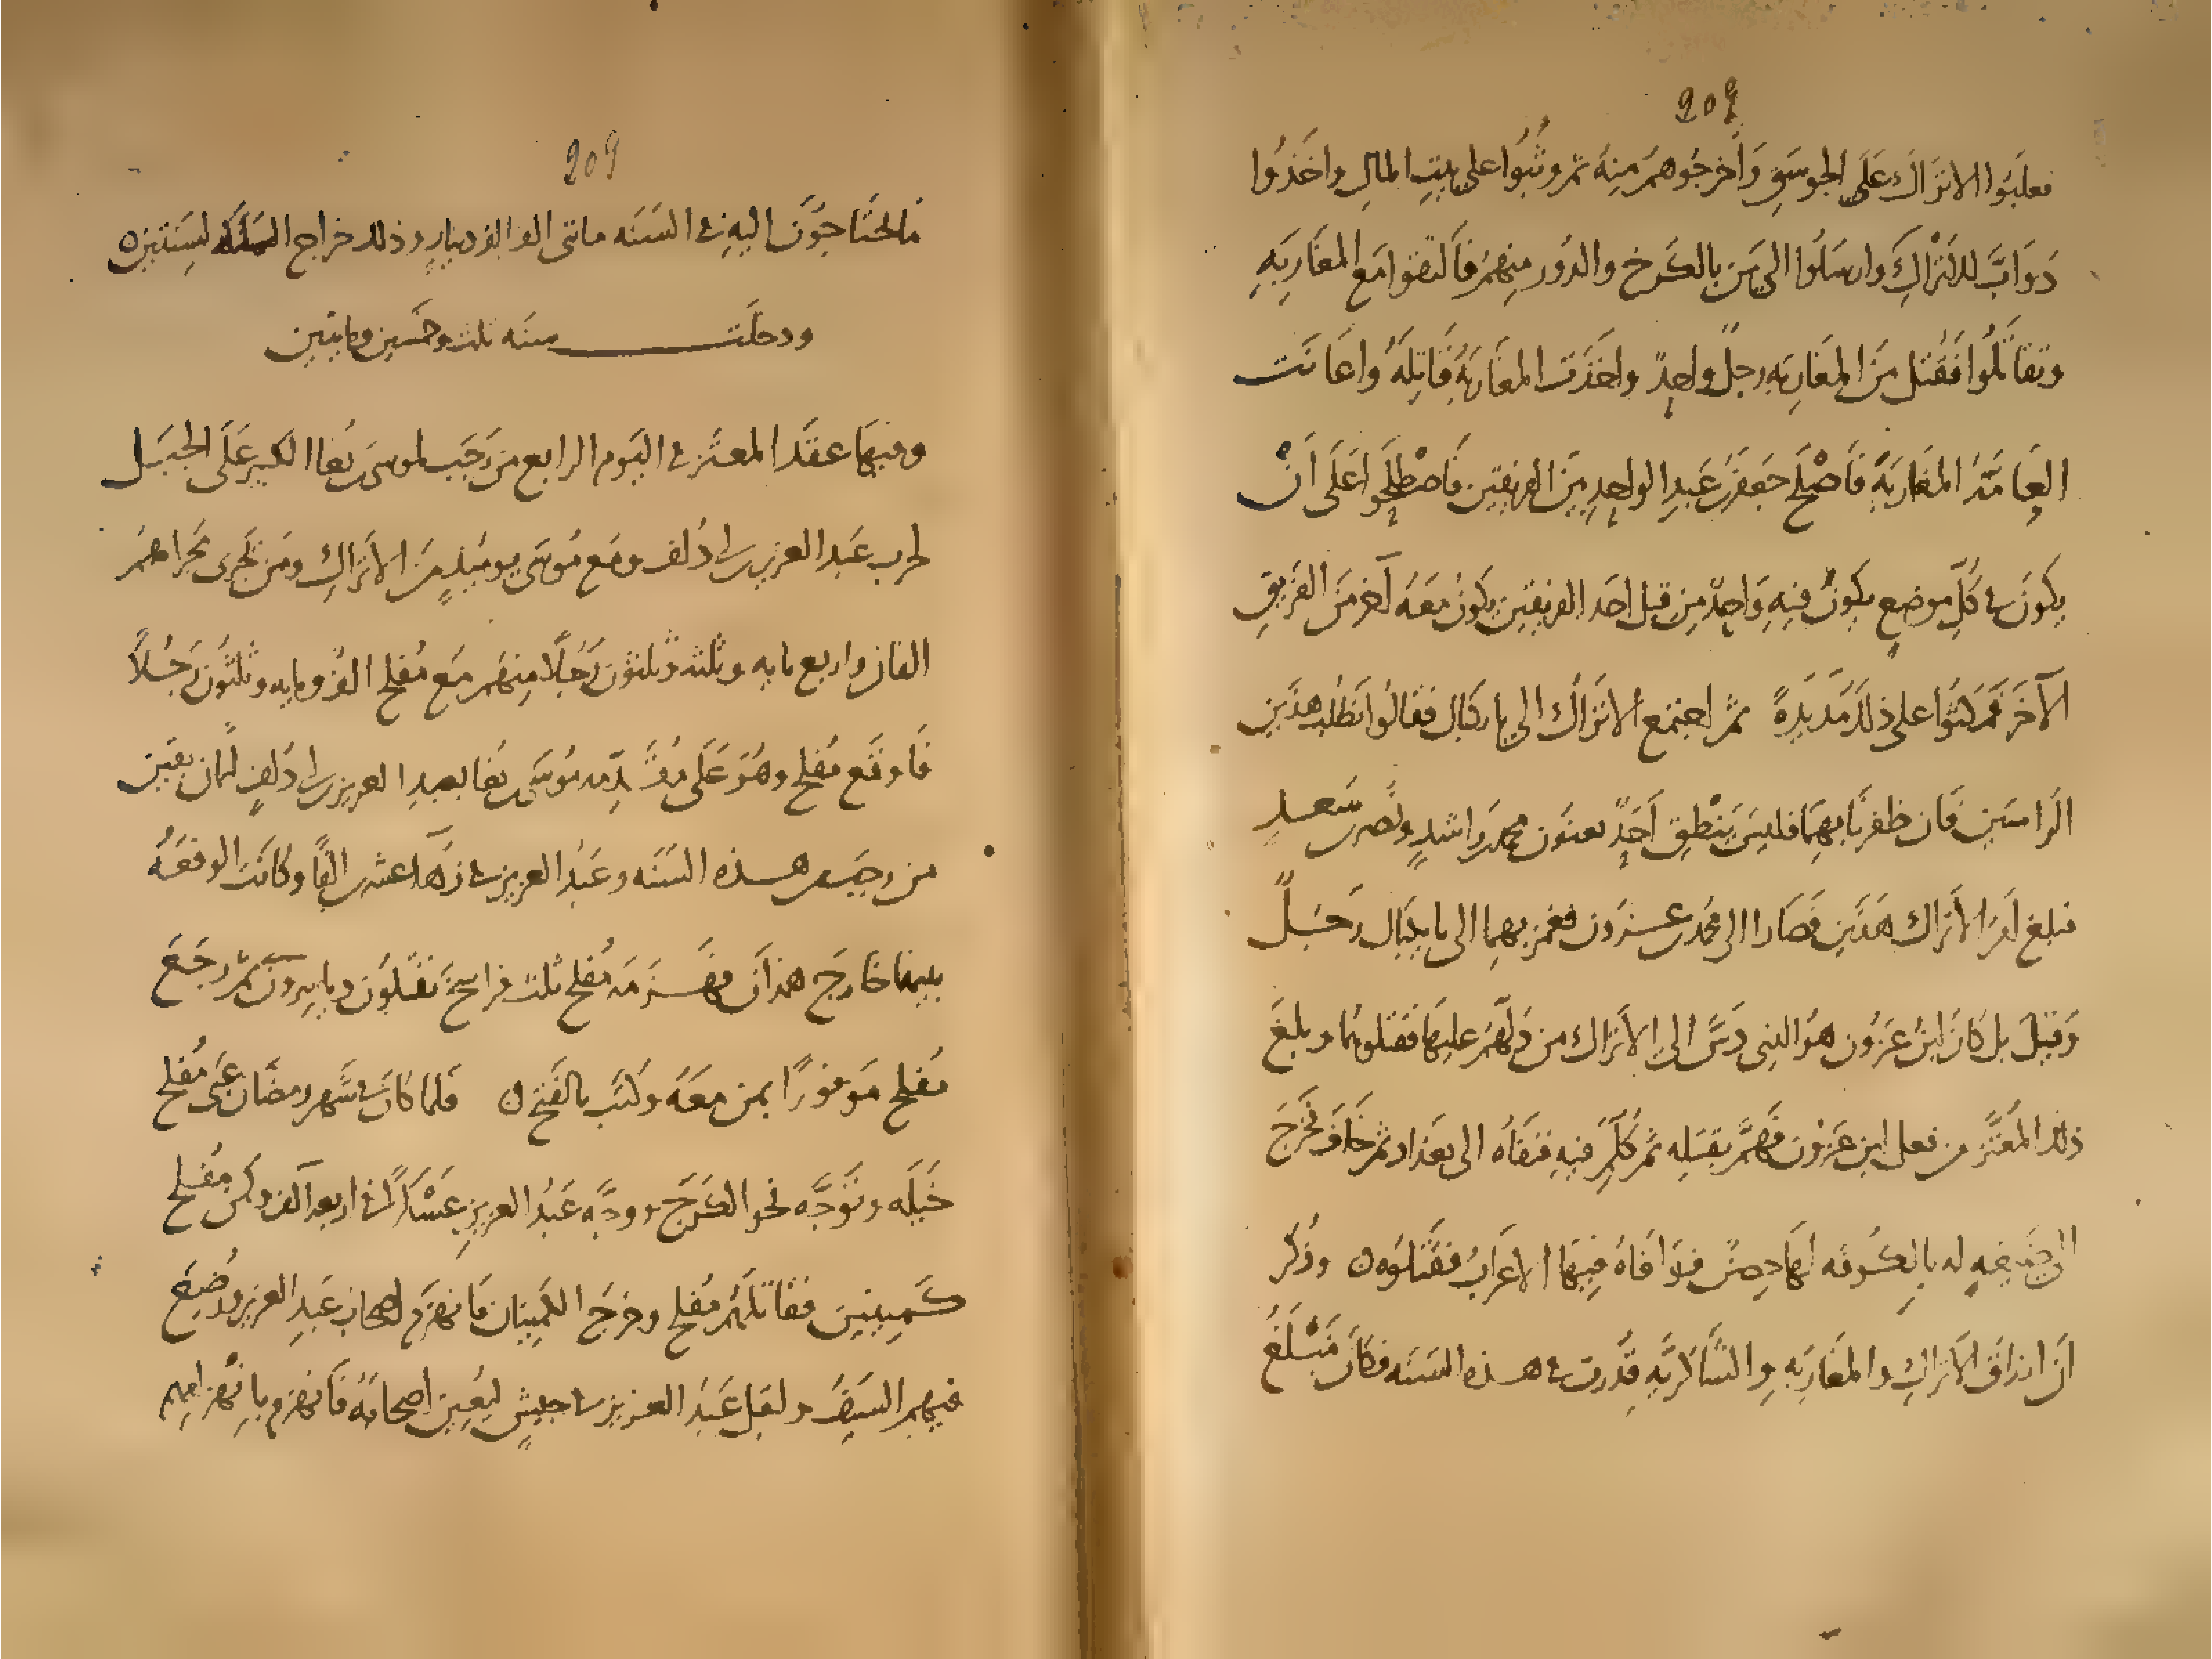 208
فغلبوا الاتراك على الجوسق وأخرجوهم منه ثم وثبوا على بيت المال واخذوا
دوابّ للاتراك وارسلوا الى من بالكرخ والدور منهم فالتقوا مع المغاربه
وتقاتلوا فقتل من المغاربه رجل واحد واخذت المغاربة قاتله واعانت
العامّة المغاربة فاصلح جعفر بن عبد الواحد بين الفريقين فاصطلحوا على ان
يكون في كل موضع يكون فيه واحد من قبل احد الفريقين يكون معه آخر من الفريق
الآخر فمكثوا على ذلك مديدة ثم اجتمع الاتراك الى بايكبال فقالوا نطلب هذين
الراسين فان ظفرنا بهما فليس ينطق أحد يعنون محمد بن راشد ونصر بن سعد
فبلغ أمر الاتراك هذين فصارا الى محمد بن عزون فغمز بهما الى بايكبال رجل
وقيل بل كان ابن عزون هو الذى دسّ الى الاتراك من دلّهم عليهما فقتلوهما وبلغ
ذلك المعتز من فعل ابن عزون فهمّ بقتله ثم كلم فيه فنفاه الى بغداد ثم خاف فخرج
الى ضيعه له بالكوفه لها حصن فوافاه فيها الاعراب فقتلوه ه وذكر
أن ارزاق الاتراك والمغاربه والشاكريه قدرت في هذه السنه فكان مبلغ
209
ما يحتاجون اليه في السنه مائتى الف الف دينار وذلك خراج المملكه لسنتين ه
ودخلت سنه ثلث وخمسين ومايتين
وفيها عقد المعتز في اليوم الرابع من رجب لموسى بن بغا الكبير على الجبل
لحرب عبد العزيز بن ابى دلف ومع موسى يوميذ من الاتراك ومن يجرى مجراهم
الفان واربع مايه وثلثه وثلثون رجلا منهم مع مفلح الف ومايه وثلثون رجلا
فاوقع مفلح وهو على مقدّمه موسى بن بغا بعبد العزيز بن ابى دلف لثمان بقين
من رجب من هذه السنه وعبد العزيز في زهاء عشرين الفا وكانت الوقعه
بينهما خارج همذان فهزمه مفلح ثلث فراسخ يقتلون وياسرون ثم رجع
مفلح موفورا بمن معه وكتب بالفتح ه فلما كان في شهر رمضان عبى مفلح
خيله وتوجّه نحو الكرج ووجّه عبد العزيز عسكرا في اربعه آلف وكمن مفلح
كمينين فقاتلهم مفلح وخرج الكمينان فانهزم اصحاب عبد العزيز ووضع
فيهم السيف واقبل عبد العزيز في جيش ليعين اصحابه فانهزم بانهزامهم